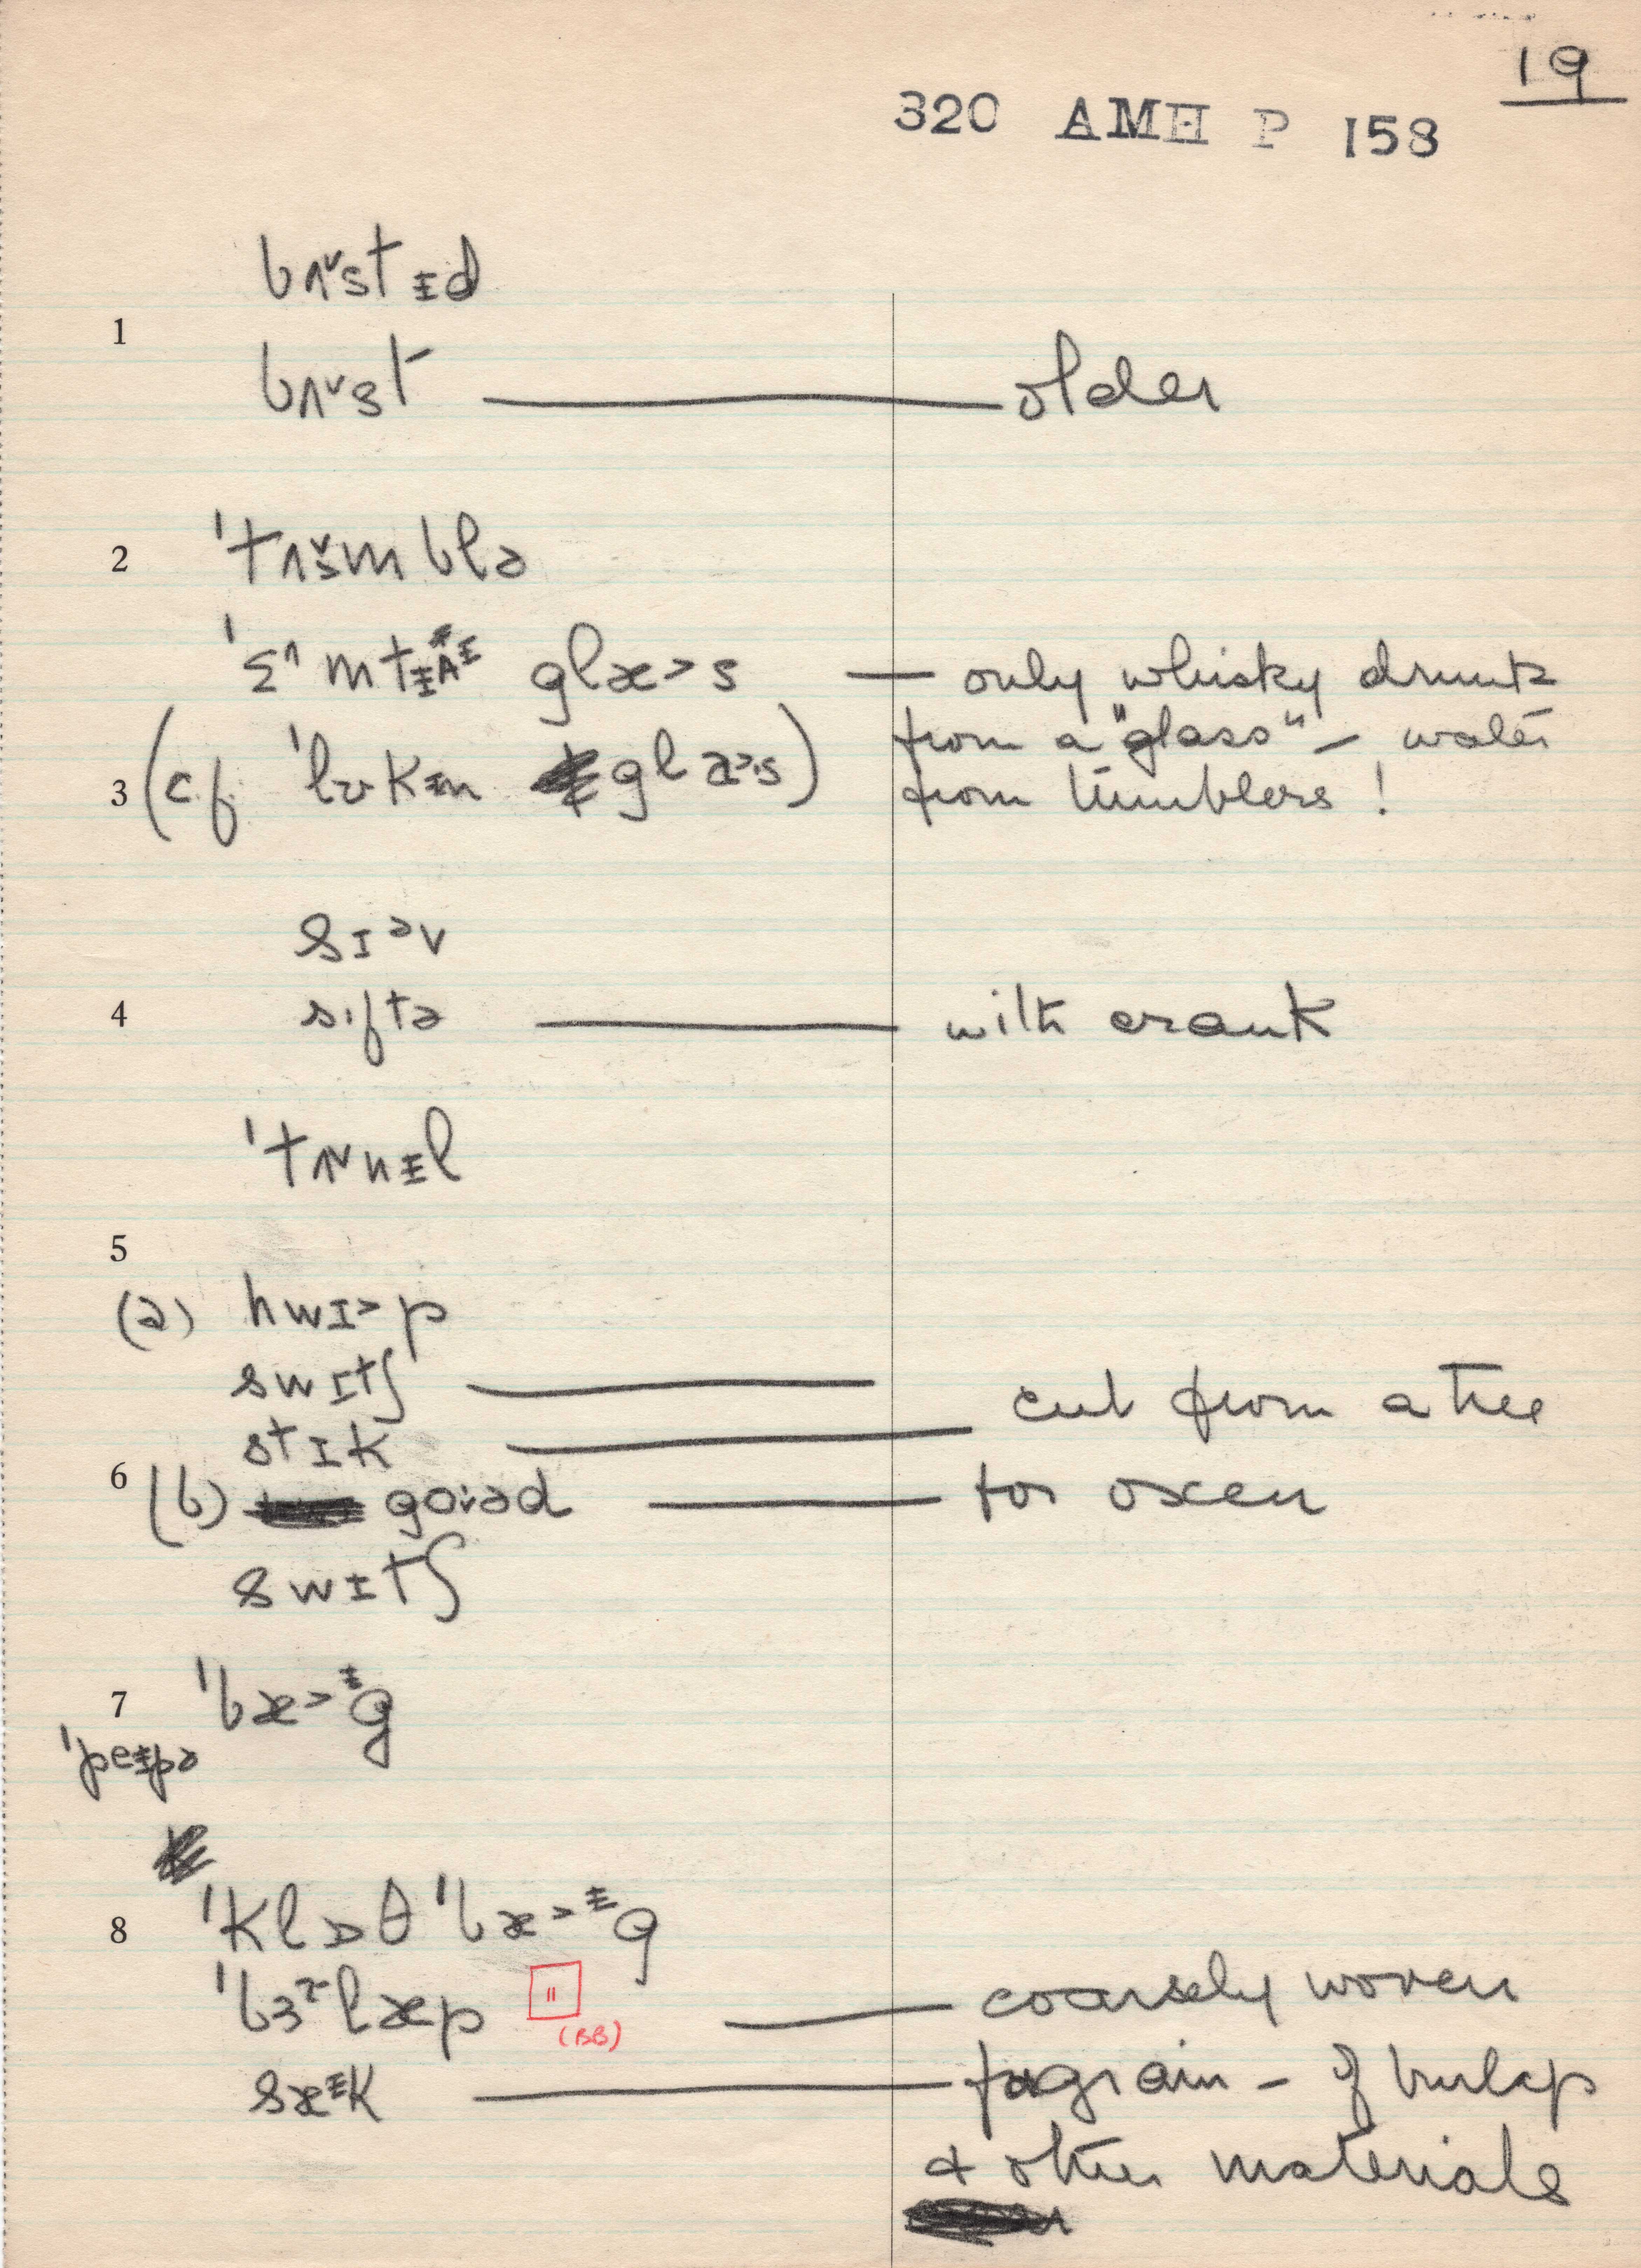 19
320 AMH P 158
bʌ˅stᵻd
1
bʌ˅st — older
2 'tʌ˅mblə
'ɛ^mtᵻ glæ>s — only whisky drunk
from a "glass" – water
3 (cf 'lʊkᵻn glæ>s) from tumblers!
sɪᵊv
4 sɪftə — with crank
'tʌ˅nᵻl
5
(a) hwɪ>p
swɪtʃ — cut from a tree
stɪk —
6 (b) goəd — for oxen
swɪtʃ
7 'bæ>ᵻg
'peᵻpə
8 'klɒθ 'bæ>ᵻg
'bɜlæp " — coarsely woven
(BB)
sæᵻk — for grain – of burlap
& other materials